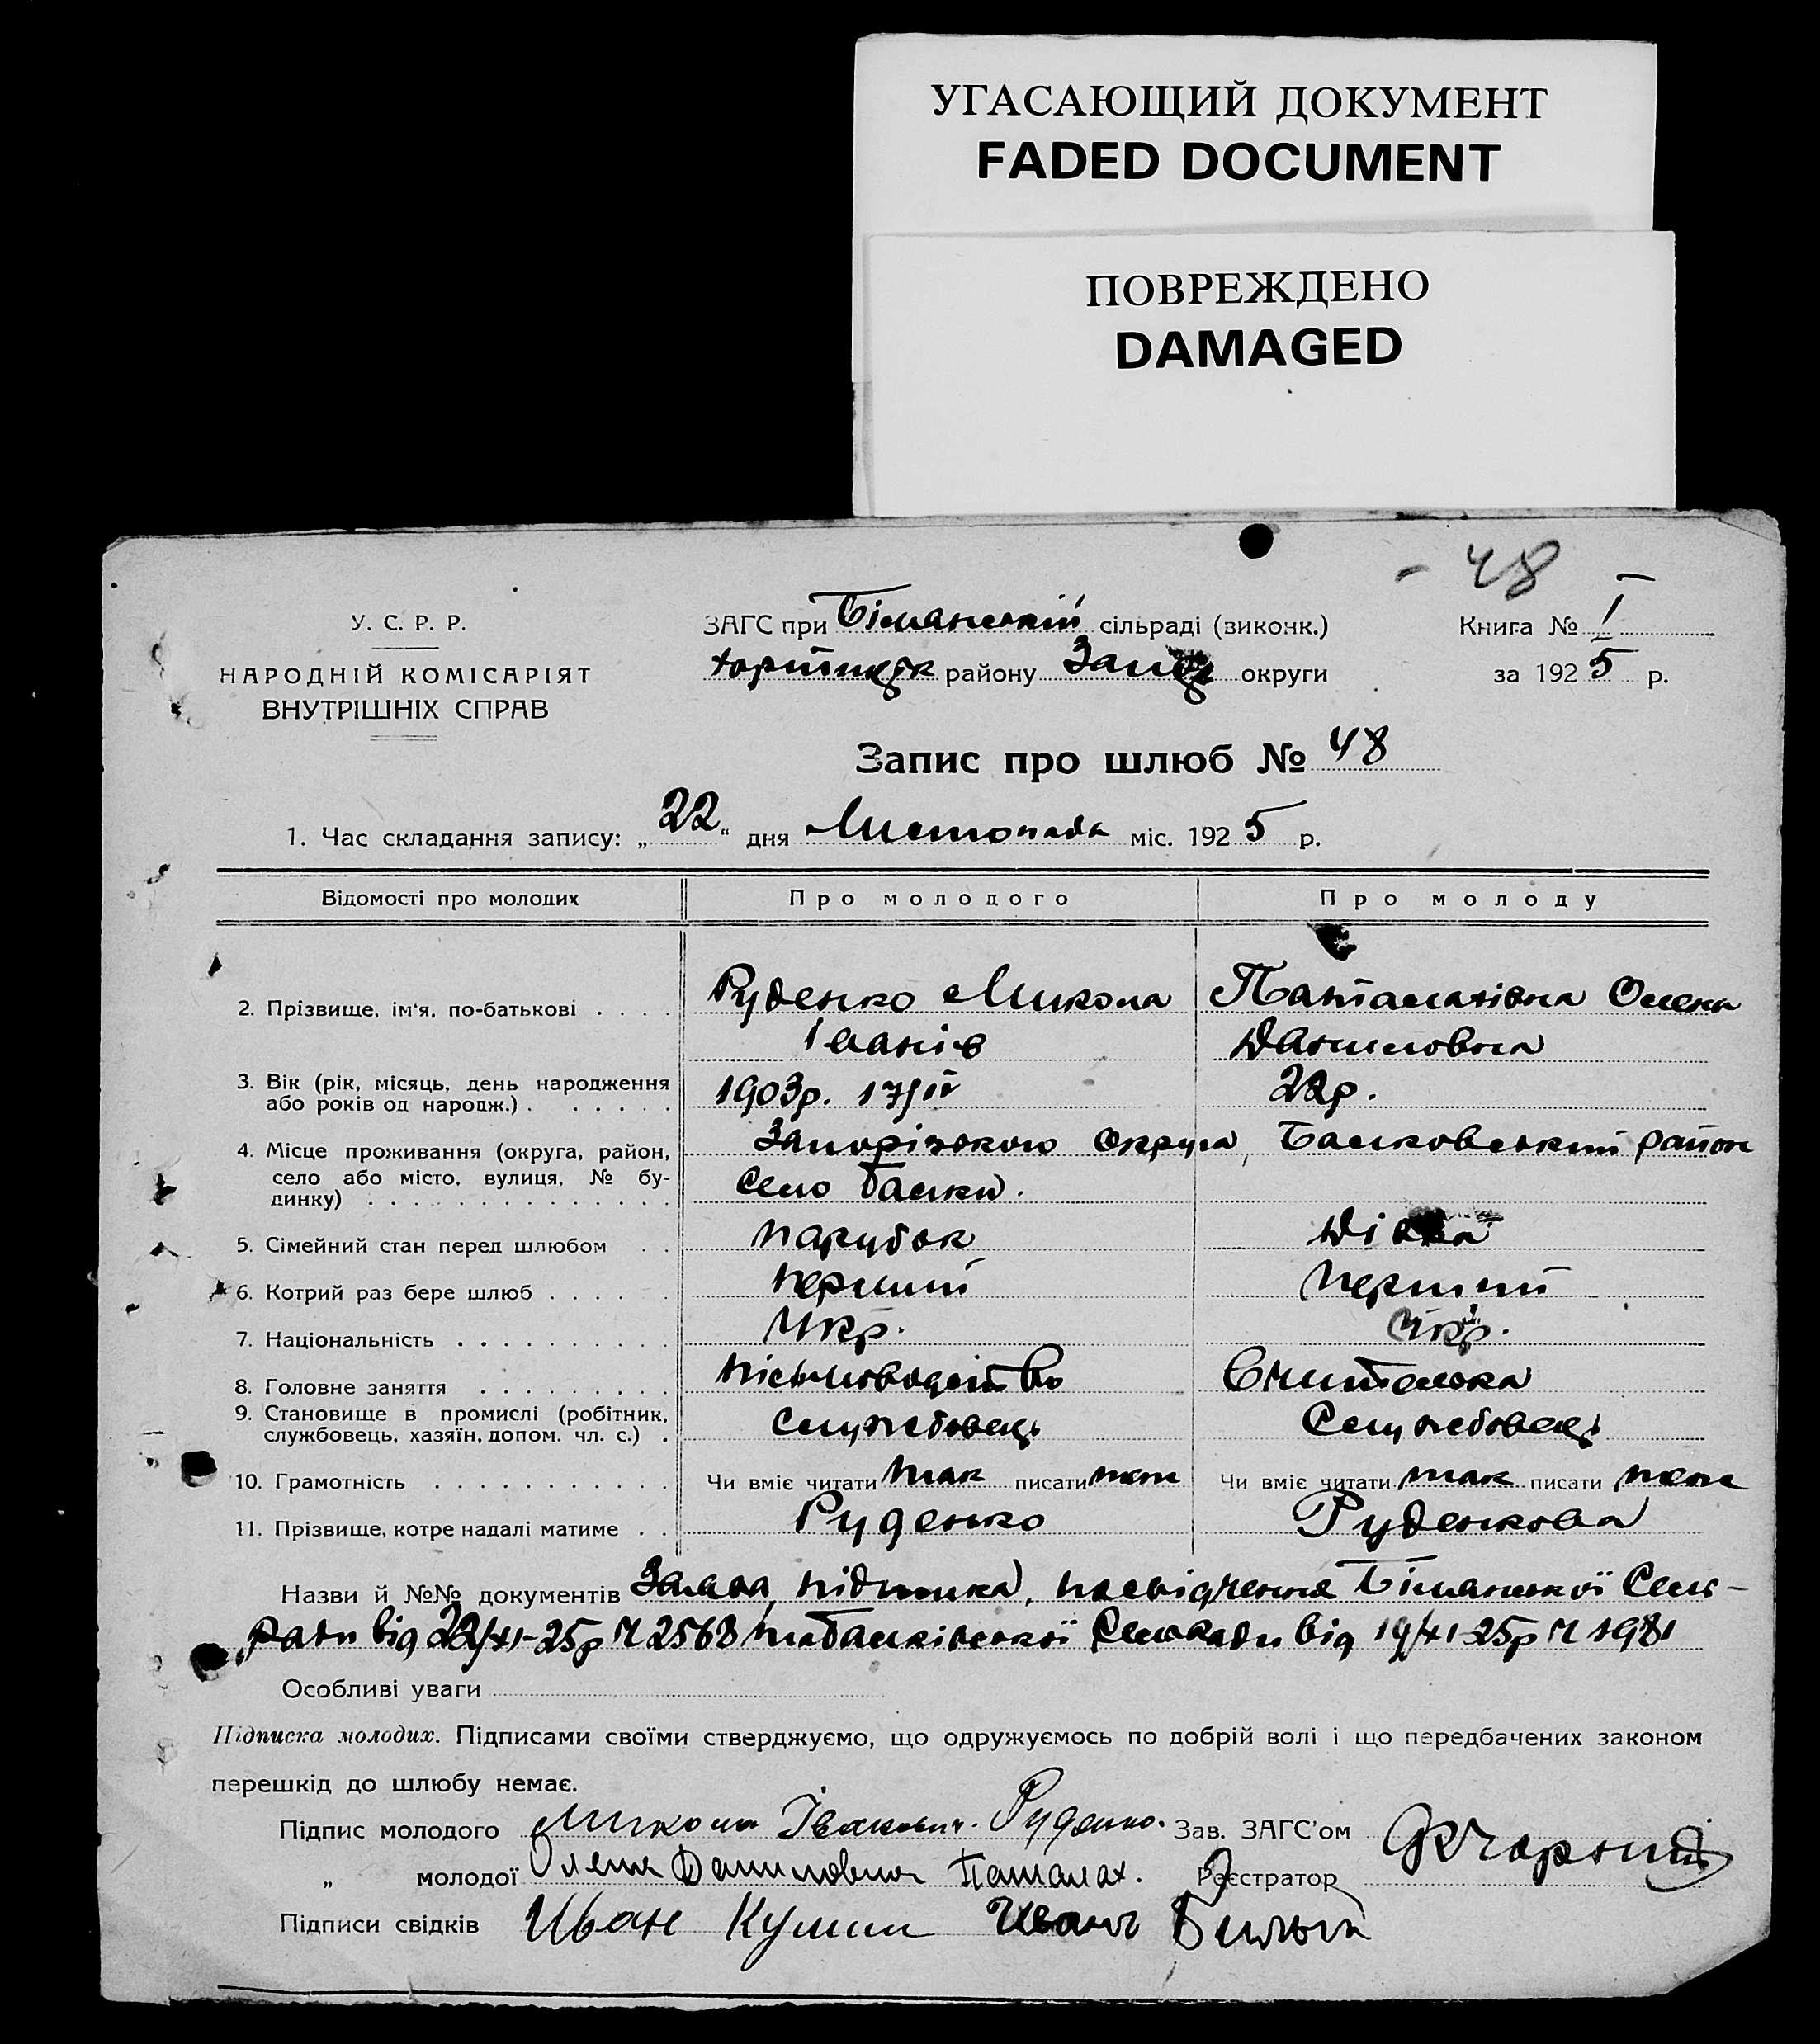 УГАСАЮЩИЙ ДОКУМЕНТ
FADED DOCUMENT
ПОВРЕЖДЕНО
DAMAGED
- 48
У. С. Р. Р.
НАРОДНІЙ КОМІСАРІЯТ
ВНУТРІШНІХ СПРАВ
ЗАГС при Біманській сільраді (виконк.)
району округи
Книга № I
за 1925 р.
Запис про шлюб № 48
1. Час складання запису: „22“ дня Листопада міс. 1925 р.
Відомості про молодих Про молодого Про молоду
2. Прізвище, ім'я, по-батькові . . . . Руденко Микола Олена
Іванів Даниловна
3. Вік (рік, місяць, день народження 1903р. 17/IV 22р.
або років од народж.) . . . . . .
4. Місце проживання (округа, район, Запорізького Округа, Балковський район
село або місто, вулиця, № бу- Село Балки.
динку) . . . . . . . . . . . . . .
5. Сімейний стан перед шлюбом . . парубок
6. Котрий раз бере шлюб . . . . . . перший перший
7. Національність . . . . . . . . . . Укр. Укр.
8. Головне заняття . . . . . . . . . письмоводство Вчителька
9. Становище в промислі (робітник, службовець, хазяїн, допом. чл. с.) . Службовець Службовець
10. Грамотність . . . . . . . . . . . Чи вміє читати так писати теж Чи вміє читати так писати теж
11. Прізвище, котре надалі матиме . . Руденко Руденкова
Назви й №№ документів Заява, підписка, посвідчення Біманської Сель-
ради від 22/XI-25р Ч 2568 та Балківської Сельради від 19/XI 25р Ч 1981
Особливі уваги
Підписка молодих. Підписами своїми стверджуємо, що одружуємось по добрій волі і що передбачених законом
перешкід до шлюбу немає.
Підпис молодого Микола Іванович Руденко. Зав. ЗАГС'ом
„ молодої Олена Даниловна Паталах. Реєстратор
Підписи свідків Иван Иван